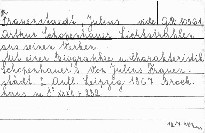 Frauenstaedt, Julius vide Gβ 10561
Arthur Schopenhauer Lichtstrahlen
aus seinen Werken.
Mit einer Biographie und Charakteristik
Schopenhauer's. Von Julius Frauen-
städt. 2. Aufl. Leipzig 1867 Brock-
haus m. 8°